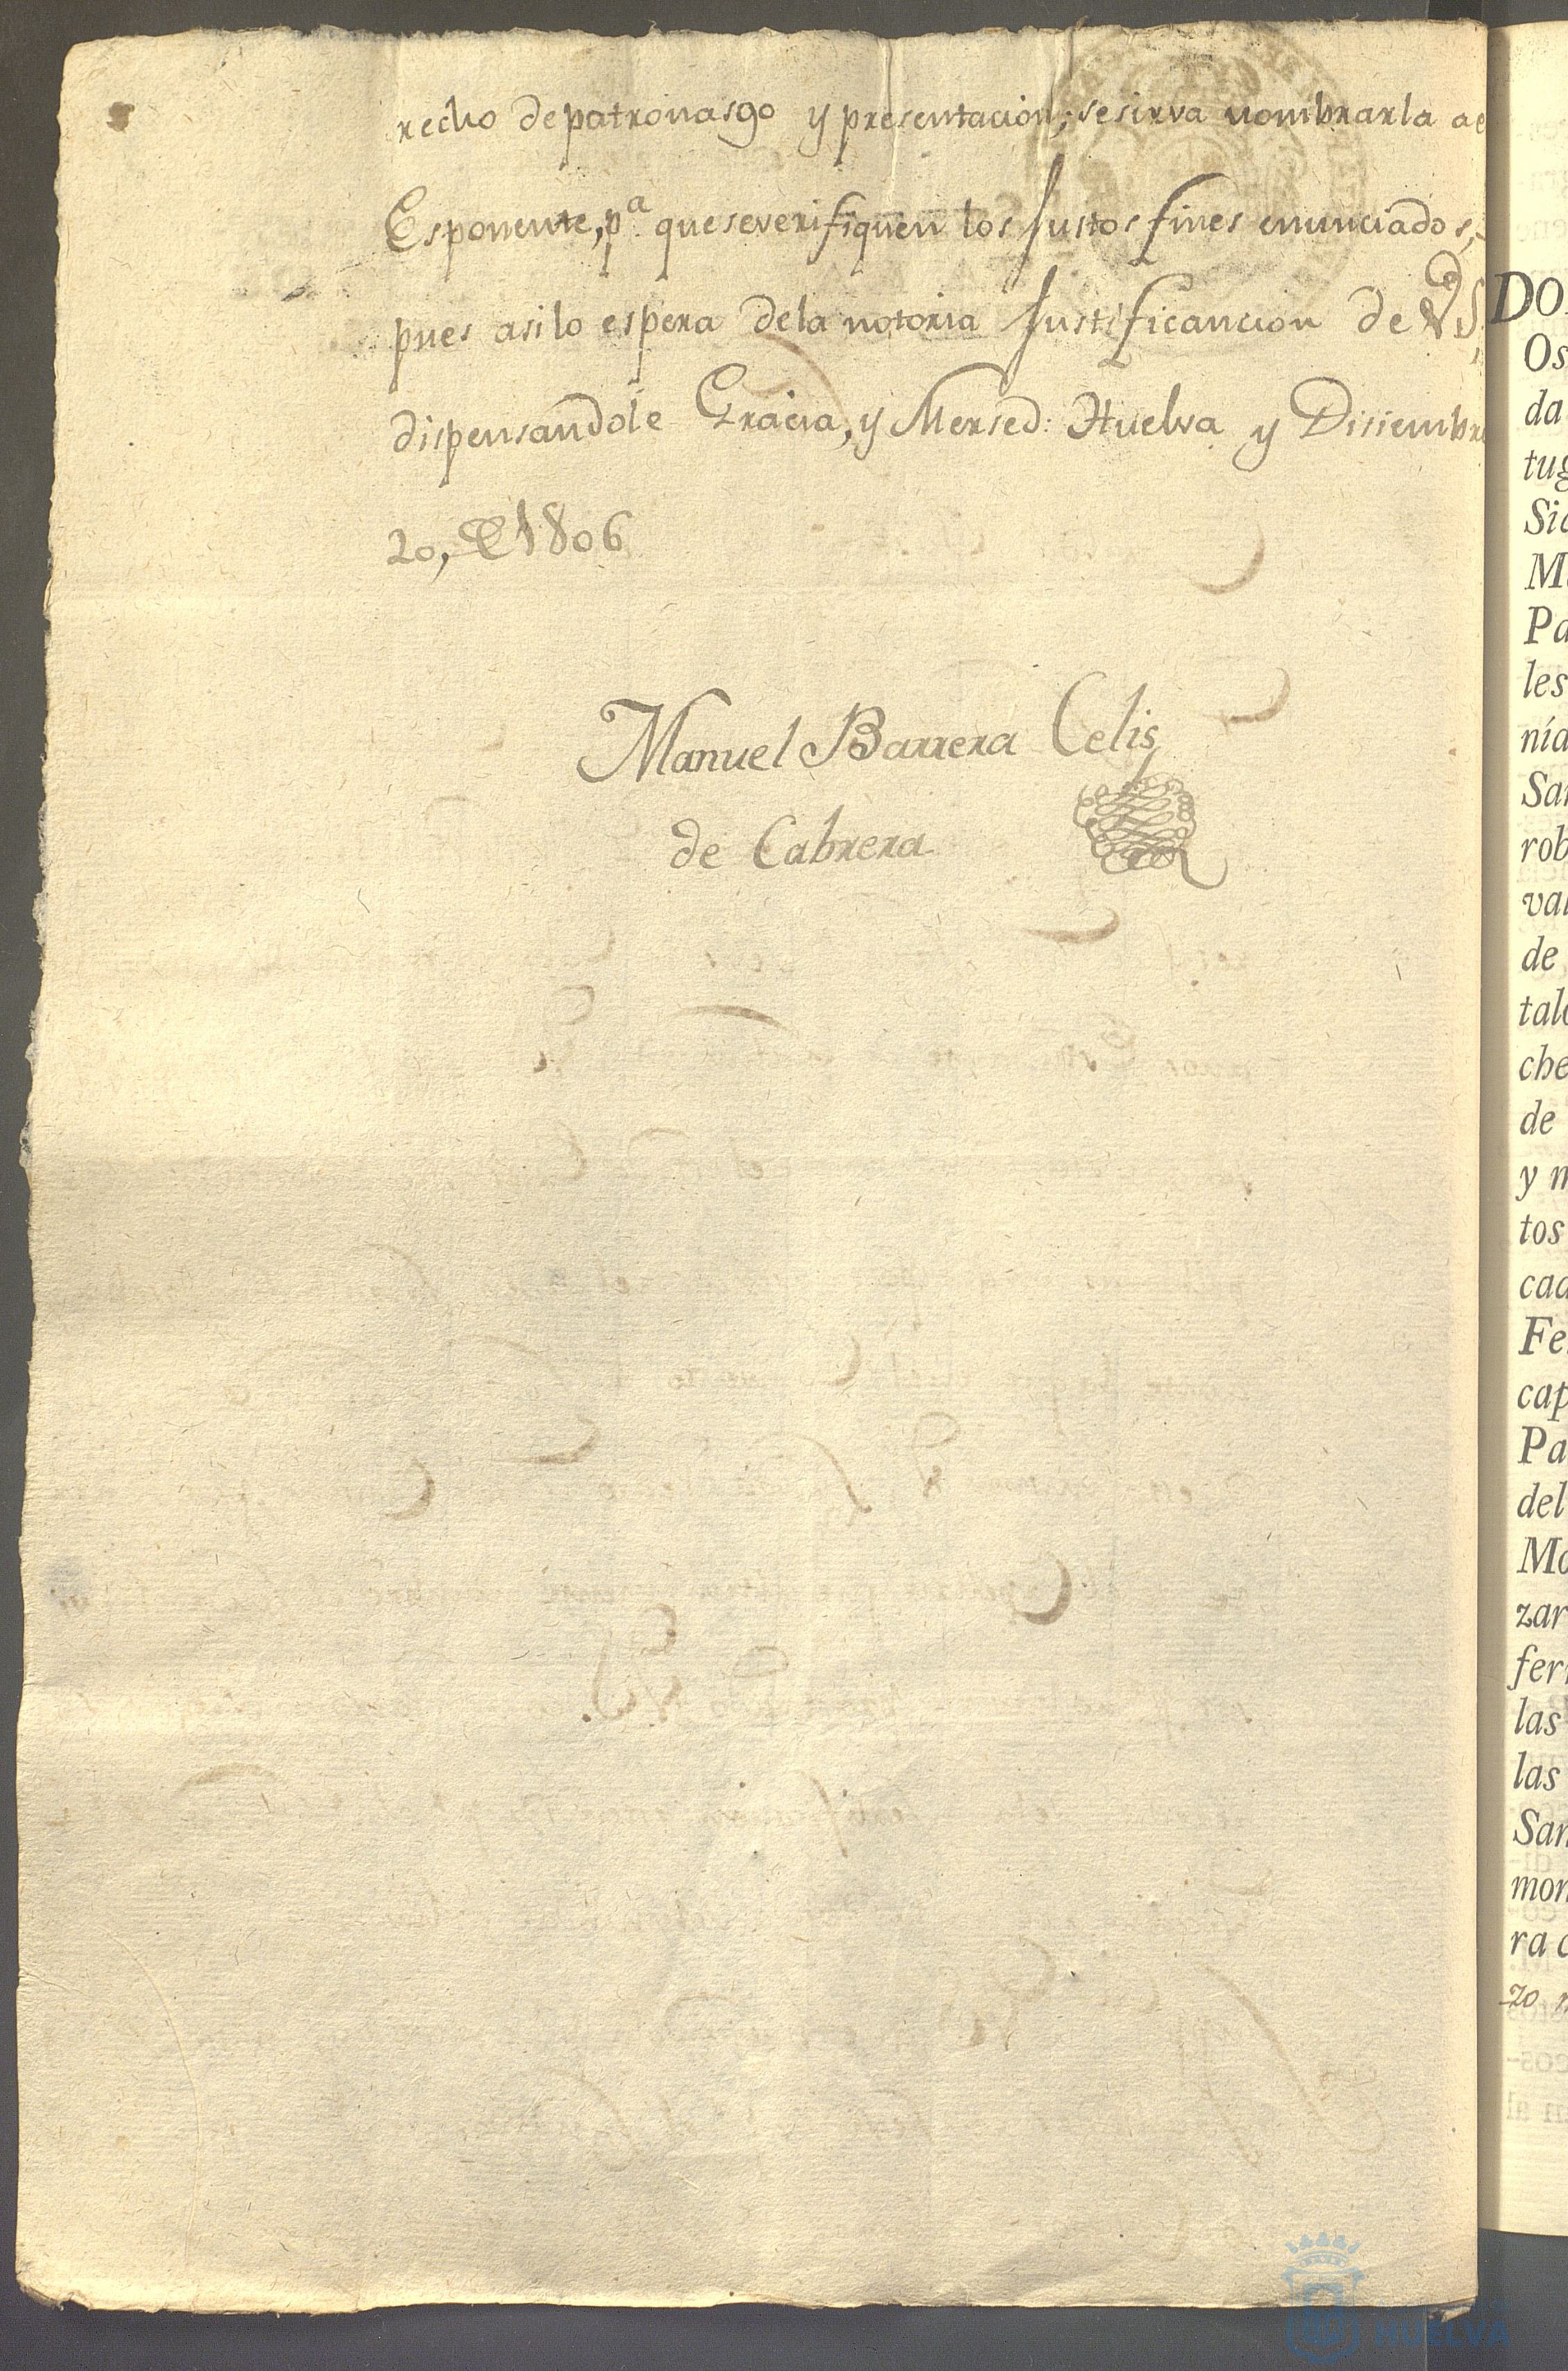 recho de patronasgo y presentacion; se sirva nombrarla ae
Esponente, pª. que se verifiquen los Justos fines enunciados,
pues asi lo espera de la notoria Justificancion de VS,
dispensandole Gracia, y Mersed: Huelva y Disiembre
20, de 1806
Manuel Barrera Celis
de Cabrera
DO
Os
da
tug
Sic
M
Pa
les
nía
Sa
rob
val
de
tale
che
de
y m
tos
cad
Fe
cap
Pa
del
Mo
zar
fer
las
las
San
mon
ra c
zo
HUELVA